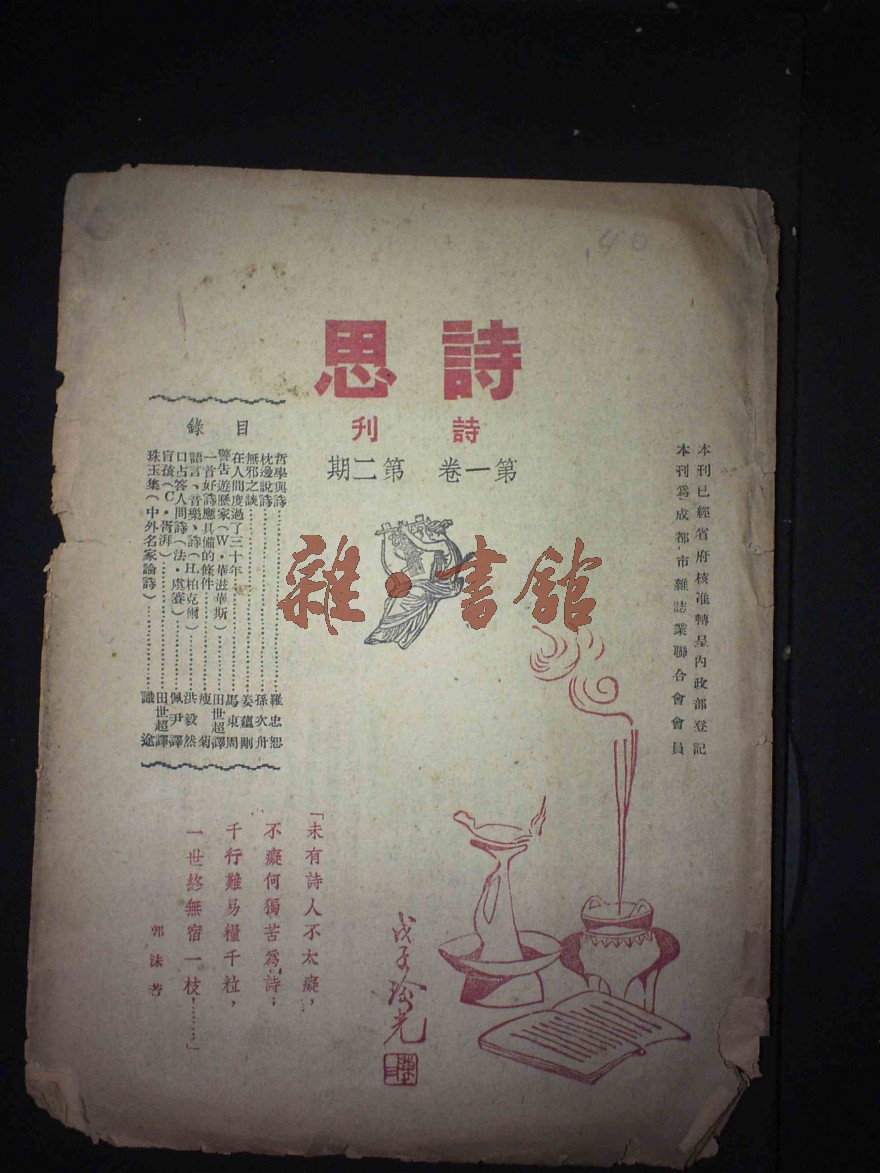 詩思
詩刊
第一卷 第二期
本刊已經省府核准轉呈內政部登記
本刊爲成都市雜誌業聯合會會員
目錄
哲學與詩……羅忠恕
枕邊說詩……孫次舟
無邪之談……姜蘊剛
在人間度過了三十年……馬東周
警告遊歷家(W·華法華斯)……田世超譯
一首好詩應具備的條件……庾菊
語言、音樂、詩(H.柏克爾)……洪毅然
口占答人問詩(法·處賽)……佩尹譯
盲孩(C·胥湃)……田世超譯
珠玉集(中外名家論詩)……識途
雜·書館
「未有詩人不太癡,
不癡何獨苦爲詩;
千行難易糧千粒,
一世終無宿一枝,……」
郭沫若
戊子 光